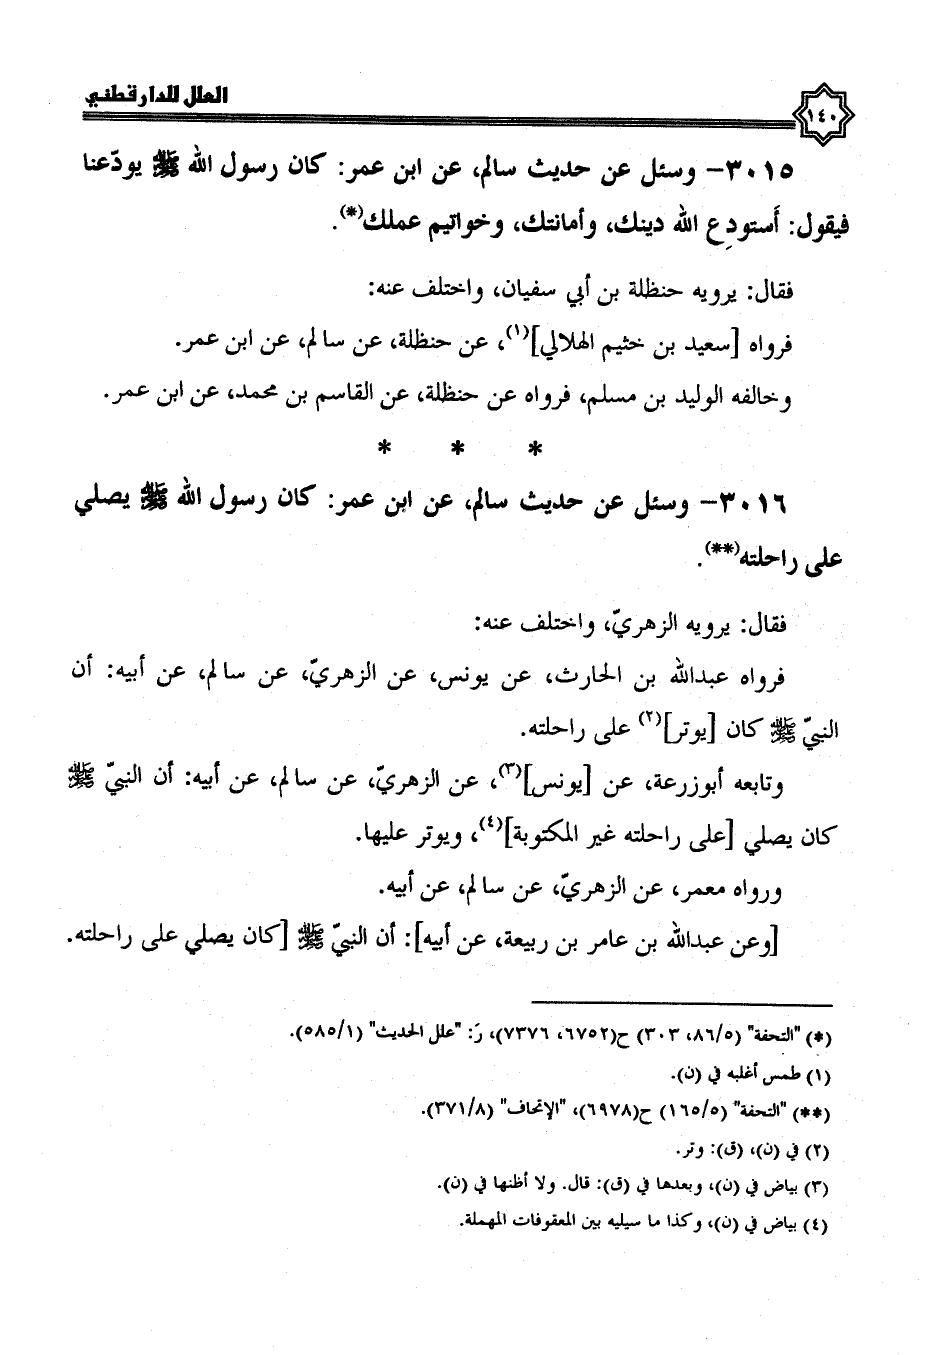 العلل للدارقطني
١٤٠
٣٠١٥- وسئل عن حديث سالم، عن ابن عمر: كان رسول الله ﷺ يودّعنا
فيقول: أَستودِع الله دينك، وأمانتك، وخواتيم عملك(*).
فقال: يرويه حنظلة بن أبي سفيان، واختلف عنه:
فرواه [سعيد بن خثيم الهلالي](١)، عن حنظلة، عن سالم، عن ابن عمر.
وخالفه الوليد بن مسلم، فرواه عن حنظلة، عن القاسم بن محمد، عن ابن عمر.
* * *
٣٠١٦- وسئل عن حديث سالم، عن ابن عمر: كان رسول الله ﷺ يصلي
على راحلته(**).
فقال: يرويه الزهريّ، واختلف عنه:
فرواه عبدالله بن الحارث، عن يونس، عن الزهريّ، عن سالم، عن أبيه: أن
النبيّ ﷺ كان [يوتر](٢) على راحلته.
وتابعه أبوزرعة، عن [يونس](٣)، عن الزهريّ، عن سالم، عن أبيه: أن النبيّ ﷺ
كان يصلي [على راحلته غير المكتوبة](٤)، ويوتر عليها.
ورواه معمر، عن الزهريّ، عن سالم، عن أبيه.
[وعن عبدالله بن عامر بن ربيعة، عن أبيه]: أن النبيّ ﷺ [كان يصلي على راحلته.
(*) "التحفة" (٨٦/٥، ٣٠٣) ح(٦٧٥٢، ٧٣٧٦)، رَ: "علل الحديث" (٥٨٥/١).
(١) طمس أغلبه في (ن).
(**) "التحفة" (١٦٥/٥) ح(٦٩٧٨)، "الإتحاف" (٣٧١/٨).
(٢) في (ن)، (ق): وتر.
(٣) بياض في (ن)، وبعدها في (ق): قال. ولا أظنها في (ن).
(٤) بياض في (ن)، وكذا ما سيليه بين المعقوفات المهملة.